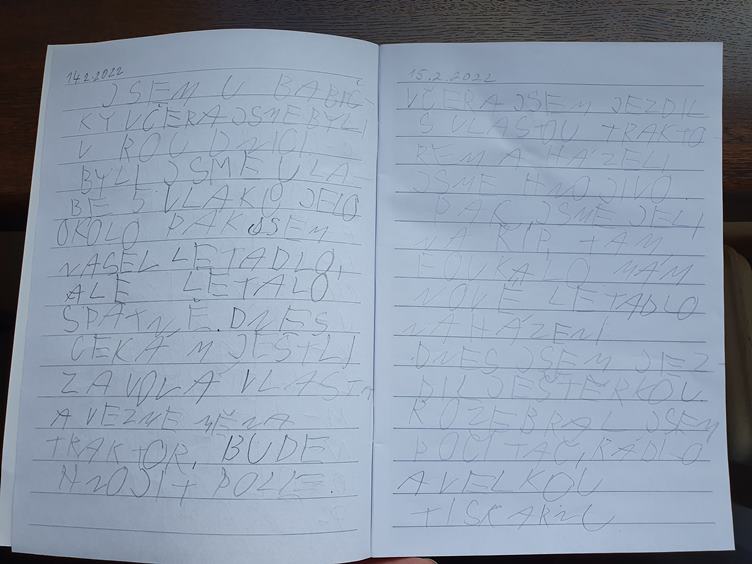 14.2.2022
JSEM U BABIČ-
KY VČERA JSME BYLI
V ROUDNICI
BYLI JSME U LA-
BE 5 VLAKŮ JELO
OKOLO PAK JSEM
NAŠEL LETADLO,
ALE LETALO
ŠPATNĚ. DNES
ČEKÁM JESTLI
ZAVOLÁ VLASTA
A VEZME MĚ NA
TRAKTOR, BUDE
HNOJIT POLE.
15.2.2022
VČERA JSEM JEZDIL
S VLASTOU TRAKTO
REM A HÁZELI
JSME HNOJIVO.
PAK JSME JELI
NA ŘÍP, TAM
FOUKALO MÁM
NOVÉ LETADLO
NA HÁZENÍ
DNES JSEM JEZ-
DIL JEŠTĚRKOU.
ROZEBRAL JSEM
POČÍTAČ, RÁDIO
A VELKOU
TISKÁRNU